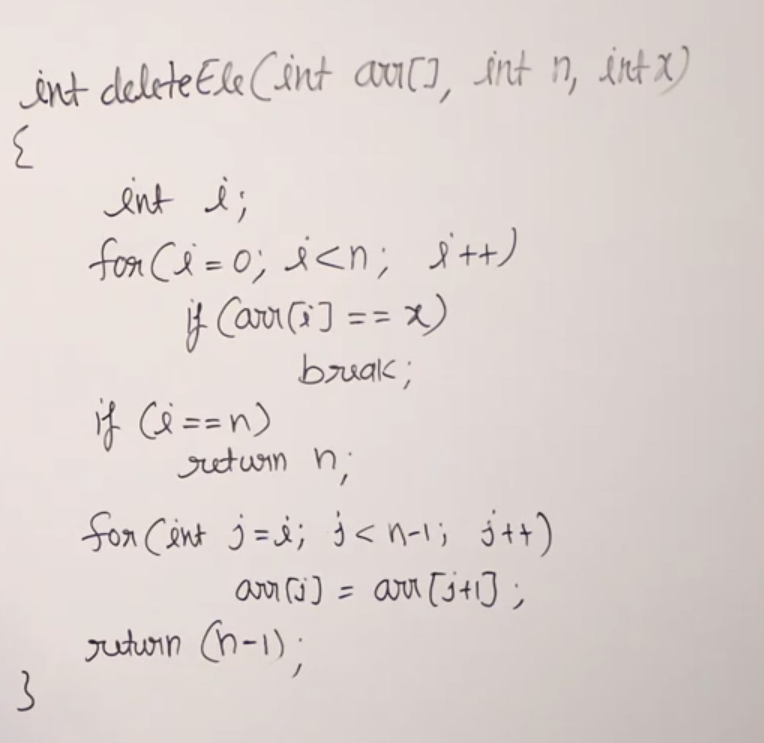 int deleteEle(int arr[], int n, int x)
{
int i;
for(i=0; i<n; i++)
if (arr[i] == x)
break;
if (i==n)
return n;
for(int j=i; j<n-1; j++)
arr[j] = arr[j+1];
return (n-1);
}